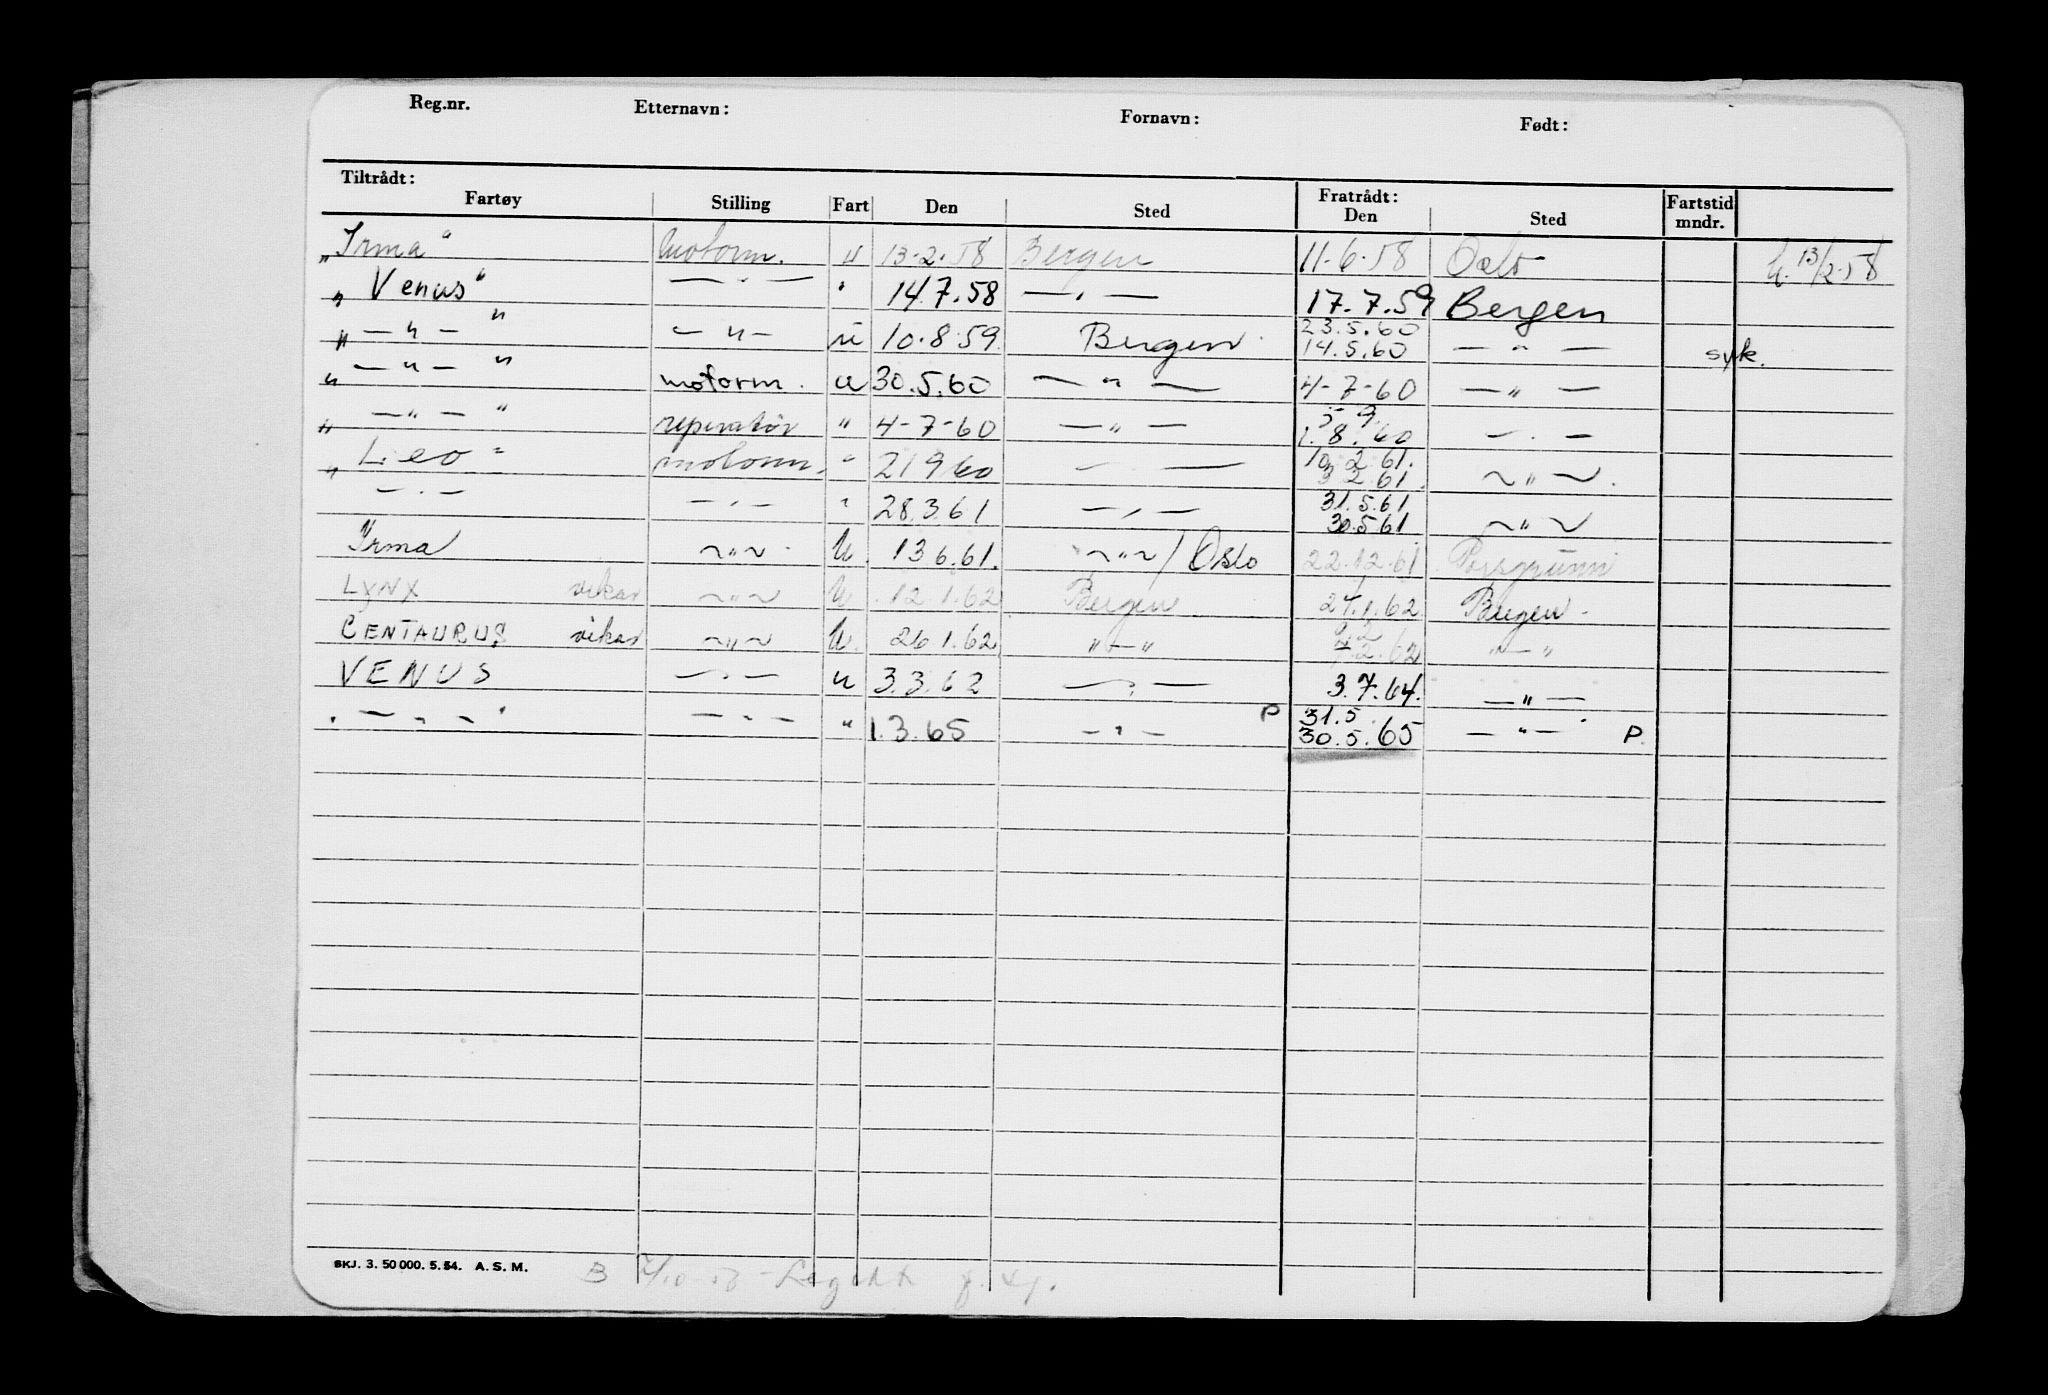 Reg.nr. Etternavn: Fornavn: Født:
Tiltrådt: Fratrådt:
Fartøy Stilling Fart Den Sted Den Sted Fartstid mndr.
„Irma" motorm. u 13.2.58 Bergen 11.6.58 Oslo 13/2.58
„Venus" — " — " 14.7.58 — " — 17.7.59 Bergen
„ — " — " — " — u 10.8.59 Bergen 23.5.60 14.5.60 — " — syk.
„ — " — " motorm. u 30.5.60 — " — 4-7-60 — " —
„ — " — " reperatør " 4-7-60 — " — 1.8.60 — " —
„Leo" motorm. " 21 9 60 — " — 10 2 61. 3 2 61. ~ " ~.
— " — — " — " 28.3.61 — " — 31.5.61 30.5.61 ~ " ~
Irma ~ " ~ U. 13 6.61. ~ " ~ / Oslo 22.12.61 Porsgrunn
LYNX vikar ~ " ~ U. 12.1.62 Bergen 27.1.62 Bergen
CENTAURUS vikar ~ " ~ U. 26 1.62 " — " 7.2.62 " — "
VENUS — " — u 3.3.62 — " — 3.7.64. — " —
" — " — " — " — " 1.3.65 — " — P 31.5 30.5.65 — " — P.
SKJ. 3. 50 000. 5. 54. A. S. M. B